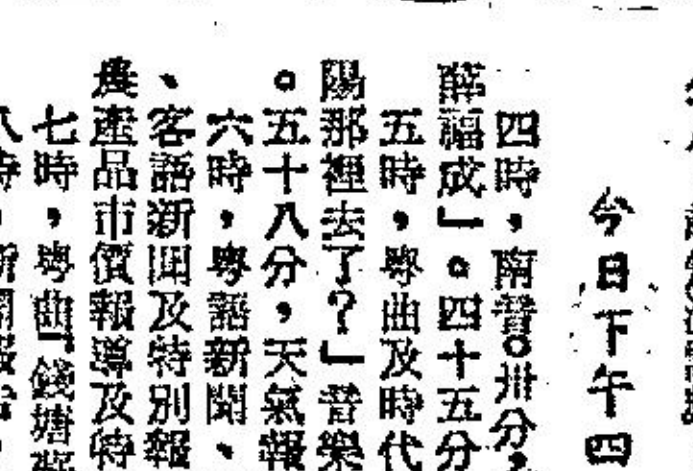 今日下午四
四時，南音。卅分，
薛福成」。四十五分
五時，粤曲及時代
陽那裡去了？」音樂
。五十八分，天氣報
六時，粤語新聞、
、客語新聞及特別報
農產品市價報導及特
七時，粤曲「錢塘
八時，新聞報